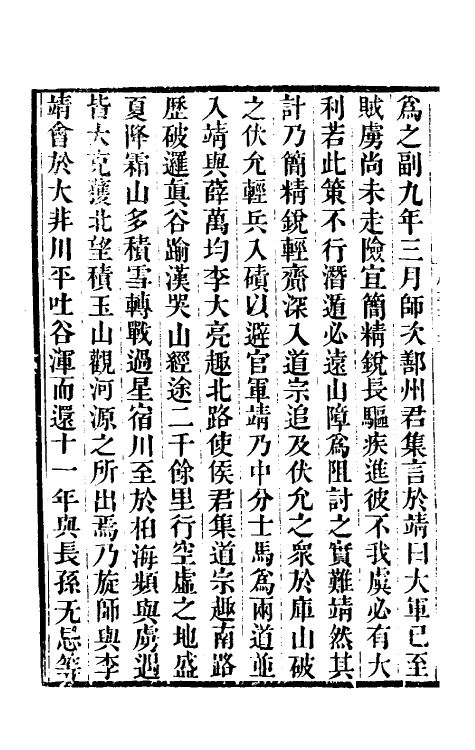 爲之副九年三月師次鄯州君集言於靖曰大軍已至
賊虜尚未走險宜簡精銳長驅疾進彼不我虞必有大
利若此策不行潛遁必遠山障爲阻討之實難靖然其
計乃簡精銳輕齎深入道宗追及伏允之衆於庫山破
之伏允輕兵入磧以避官軍靖乃中分士馬爲兩道並
入靖與薛萬均李大亮趣北路使侯君集道宗趣南路
歷破邏眞谷踰漢哭山經途二千餘里行空虛之地盛
夏降霜山多積雪轉戰過星宿川至於柏海頻與虜遇
皆大克獲北望積玉山觀河源之所出焉乃旋師與李
靖會於大非川平吐谷渾而還十一年與長孫无忌等